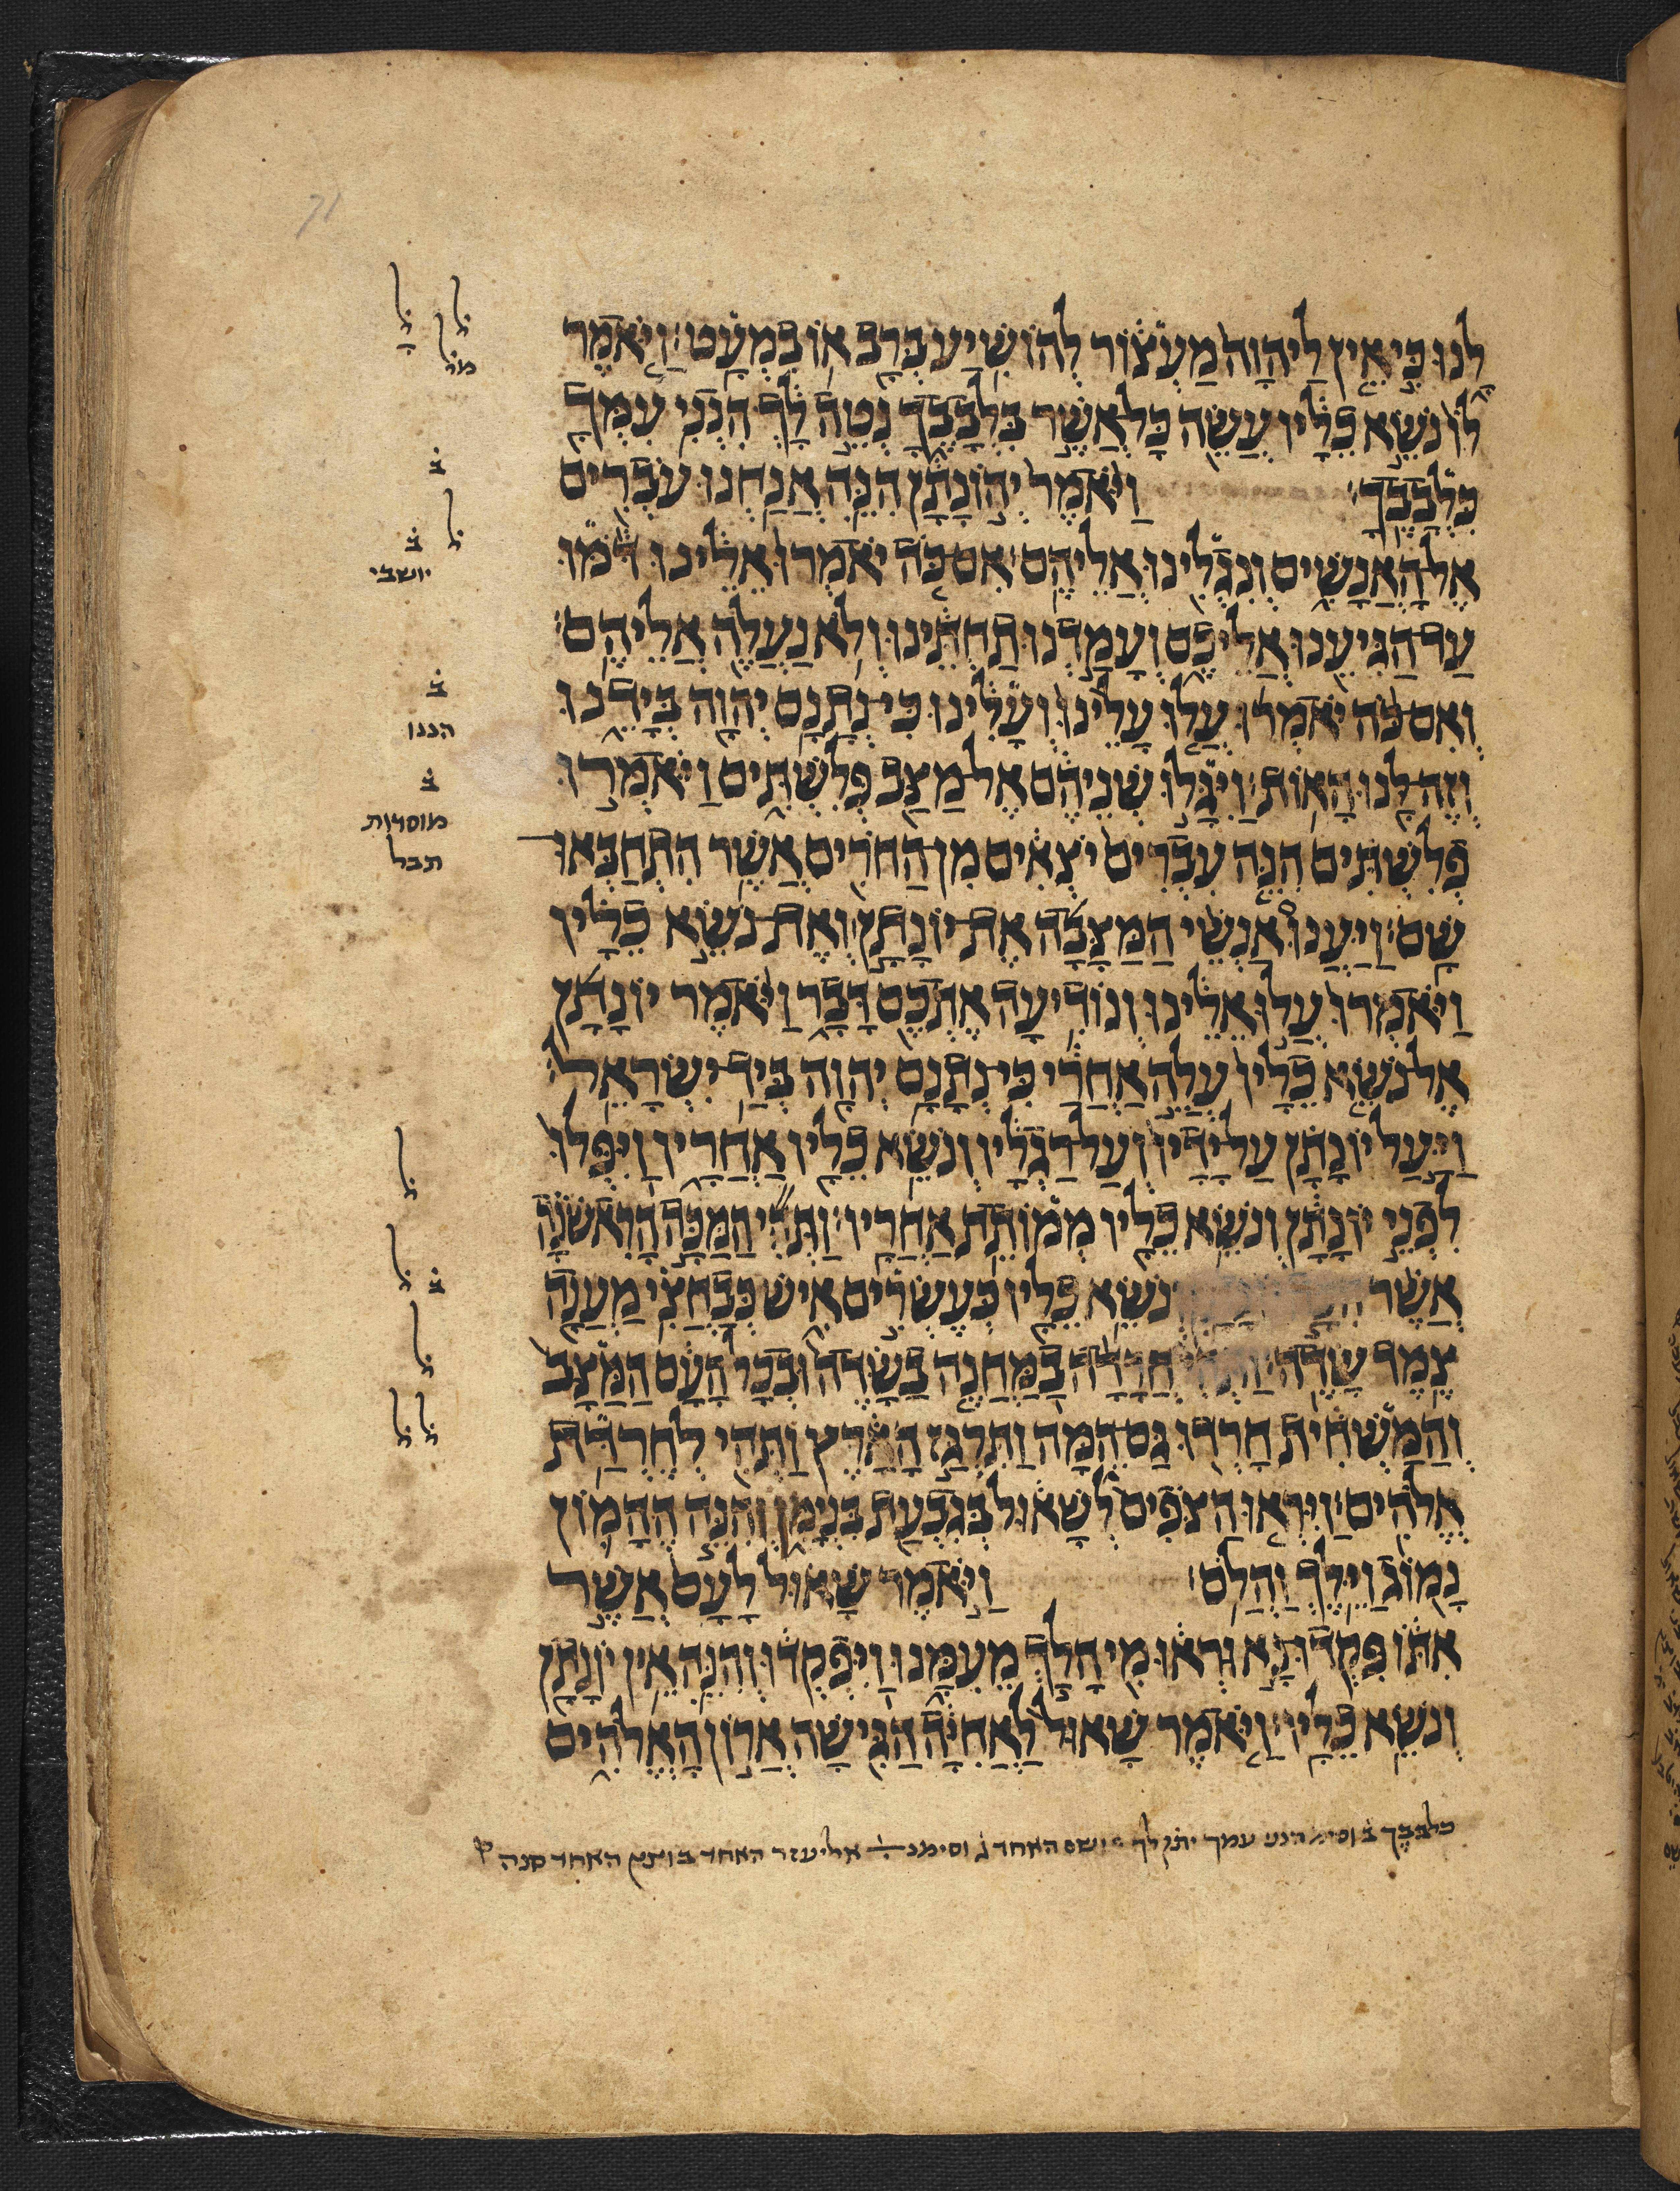 לָנוּ כִּי אֵין לַיהוָה מַעְצוֹר לְהוֹשִׁיעַ בְּרַב אוֹ בִמְעָט׃ וַיֹּאמֶר
לוֹ נֹשֵׂא כֵלָיו עֲשֵׂה כָּל־אֲשֶׁר בִּלְבָבֶךָ נְטֵה לָךְ הִנְנִי עִמְּךָ
כִּלְבָבֶךָ׃ וַיֹּאמֶר יְהוֹנָתָן הִנֵּה אֲנַחְנוּ עֹבְרִים
אֶל־הָאֲנָשִׁים וְנִגְלִינוּ אֲלֵיהֶם׃ אִם כֹּה יֹאמְרוּ אֵלֵינוּ דֹּמּוּ
עַד־הַגִּיעֵנוּ אֲלֵיכֶם וְעָמַדְנוּ תַחְתֵּינוּ וְלֹא נַעֲלֶה אֲלֵיהֶם׃
וְאִם כֹּה יֹאמְרוּ עֲלוּ עָלֵינוּ וְעָלִינוּ כִּי־נְתָנָם יְהוָה בְּיָדֵנוּ
וְזֶה־לָּנוּ הָאוֹת׃ וַיִּגָּלוּ שְׁנֵיהֶם אֶל־מַצַּב פְּלִשְׁתִּים וַיֹּאמְרוּ
פְלִשְׁתִּים הִנֵּה עִבְרִים יֹצְאִים מִן־הַחֹרִים אֲשֶׁר הִתְחַבְּאוּ־
שָׁם׃ וַיַּעֲנוּ אַנְשֵׁי הַמַּצָּבָה אֶת־יוֹנָתָן וְאֶת־נֹשֵׂא כֵלָיו
וַיֹּאמְרוּ עֲלוּ אֵלֵינוּ וְנוֹדִיעָה אֶתְכֶם דָּבָר וַיֹּאמֶר יוֹנָתָן
אֶל־נֹשֵׂא כֵלָיו עֲלֵה אַחֲרַי כִּי־נְתָנָם יְהוָה בְּיַד יִשְׂרָאֵל׃
וַיַּעַל יוֹנָתָן עַל־יָדָיו וְעַל־רַגְלָיו וְנֹשֵׂא כֵלָיו אַחֲרָיו וַיִּפְּלוּ
לִפְנֵי יוֹנָתָן וְנֹשֵׂא כֵלָיו מְמוֹתֵת אַחֲרָיו׃ וַתְּהִי הַמַּכָּה הָרִאשֹׁנָה
אֲשֶׁר נֹשֵׂא כֵלָיו כְּעֶשְׂרִים אִישׁ כְּבַחֲצִי מַעֲנָה
צֶמֶד שָׂדֶה׃ וַתְּהִי חֲרָדָה בַמַּחֲנֶה בַשָּׂדֶה וּבְכָל־הָעָם הַמַּצָּב
וְהַמַּשְׁחִית חָרְדוּ גַּם־הֵמָּה וַתִּרְגַּז הָאָרֶץ וַתְּהִי לְחֶרְדַּת
אֱלֹהִים׃ וַיִּרְאוּ הַצֹּפִים לְשָׁאוּל בְּגִבְעַת בִּנְיָמִן וְהִנֵּה הֶהָמוֹן
נָמוֹג וַיֵּלֶךְ וַהֲלֹם׃ וַיֹּאמֶר שָׁאוּל לָעָם אֲשֶׁר
אִתּוֹ פִּקְדוּ־נָא וּרְאוּ מִי הָלַךְ מֵעִמָּנוּ וַיִּפְקְדוּ וְהִנֵּה אֵין יוֹנָתָן
וְנֹשֵׂא כֵלָיו׃ וַיֹּאמֶר שָׁאוּל לַאֲחִיָּה הַגִּישָׁה אֲרוֹן הָאֱלֹהִים
ל
ל
מל
ב
ל
ב
יושבי
ב
הננו
ב
מוסדות
תבל
ל
ל
ב
ל
ל
ל
כלבבך ב וסימ הנני עמך יתן לך ושם האחד ג וסימנ אליעזר האחד בוצץ האחד סנה
71